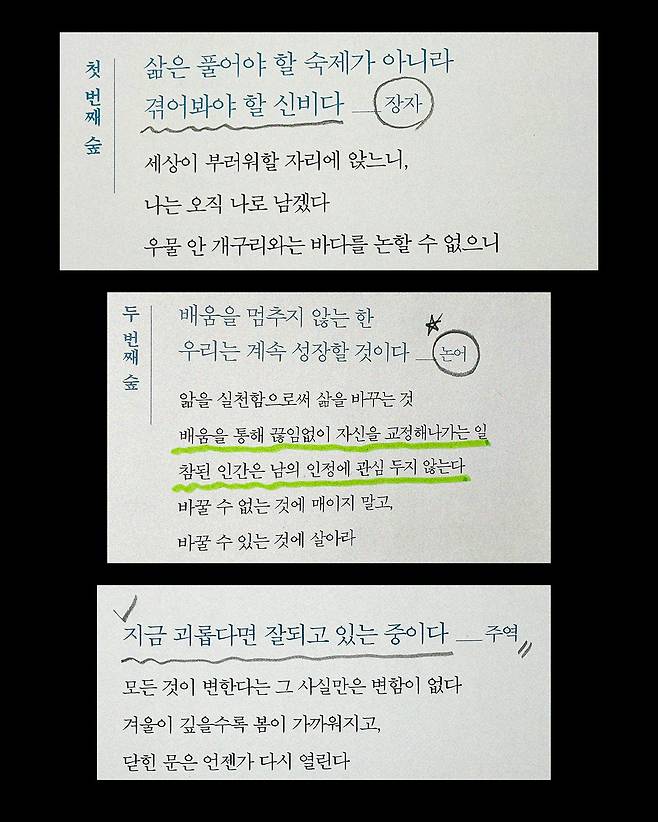 첫 번째 숲
삶은 풀어야 할 숙제가 아니라
겪어봐야 할 신비다 __장자
세상이 부러워할 자리에 앉느니,
나는 오직 나로 남겠다
우물 안 개구리와는 바다를 논할 수 없으니
두 번째 숲
배움을 멈추지 않는 한
우리는 계속 성장할 것이다 __논어
앎을 실천함으로써 삶을 바꾸는 것
배움을 통해 끊임없이 자신을 교정해나가는 일
참된 인간은 남의 인정에 관심 두지 않는다
바꿀 수 없는 것에 매이지 말고,
바꿀 수 있는 것에 살아라
지금 괴롭다면 잘되고 있는 중이다 __주역
모든 것이 변한다는 그 사실만은 변함이 없다
겨울이 깊을수록 봄이 가까워지고,
닫힌 문은 언젠가 다시 열린다